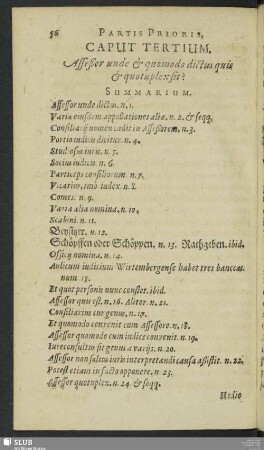 36 PARTIS PRIORIS,
CAPUT TERTIUM.
Assessor unde & quomodo dictus quis
& quotuplex sit?
SUMMARIUM.
Assessor unde dictus. n. 1.
Varia eiusdem appellationes aliæ. n. 2. & seqq.
Consiliarij nomen cadit in Assessorem. n. 3.
Portio iudicis dicitur. n. 4.
Studiosus iuris. n. 5.
Socius iudicis. n. 6.
Particeps consiliorum n. 7.
Vicarius, imò iudex. n. 8.
Comes. n. 9.
Varia alia nomina. n. 10.
Scabini. n. 11.
Beysitzer. n. 12.
Schöpffen oder Schöppen. n. 13. Rathgeben. ibid.
Officij nomina. n. 14.
Aulicum iudicium Wirtembergense habet tres bancas.
num. 15.
Et quot personis nunc constet. ibid.
Assessor quis est. n. 16. Aliter. n. 21.
Consiliarius cur genus. n. 17.
Et quomodo convenit cum Assessore. n. 18.
Assessor quomodo cum iudice convenit. n. 19.
Iureconsultus sit genus a varijs. n. 20.
Assessor non solùm iuris interpretandi causa assistit. n. 22.
Potest etiam in facto opponere. n. 23.
Assessor quotuplex. n. 24. & seqq.
Hodie
SLUB